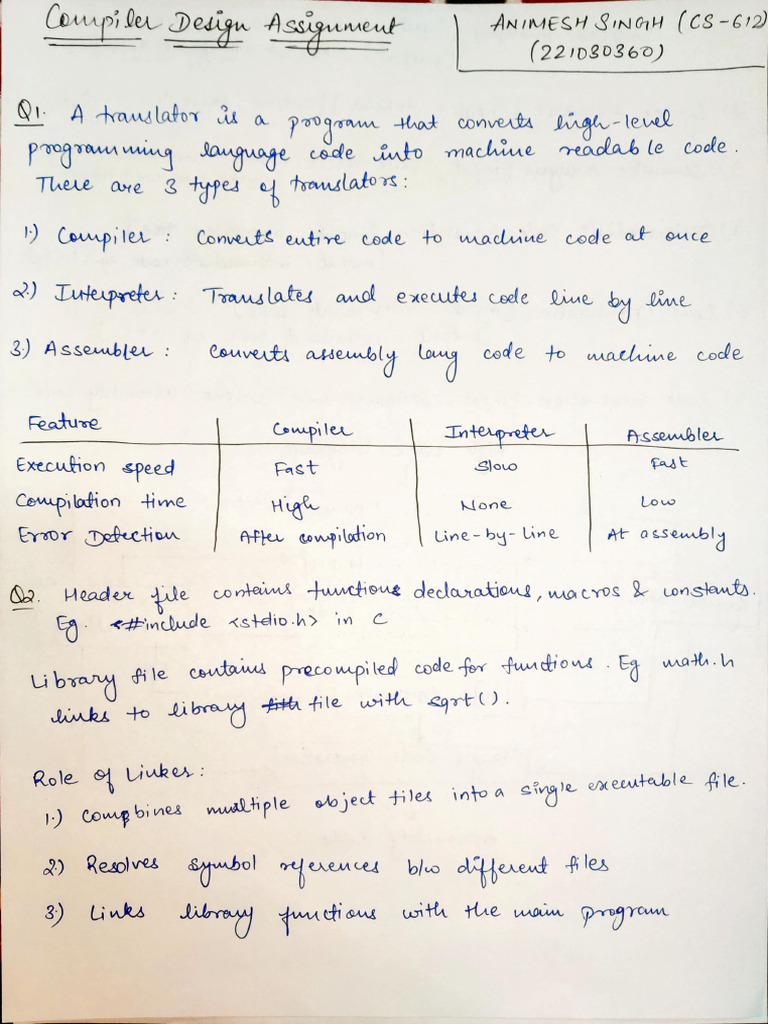 Compiler Design Assignment
ANIMESH SINGH (CS-612)
(221030360)
Q1. A translator is a program that converts high-level
programming language code into machine readable code.
There are 3 types of translators:
1.) Compiler : Converts entire code to machine code at once
2.) Interpreter : Translates and executes code line by line
3.) Assembler : Converts assembly lang code to machine code
Feature Compiler Interpreter Assembler
Execution speed Fast Slow Fast
Compilation time High None Low
Error Detection After compilation Line-by-line At assembly
Q2. Header file contains functions declarations, macros & constants.
Eg. #include <stdio.h> in C
Library file contains precompiled code for functions. Eg math.h
links to library file with sqrt().
Role of Linker :
1.) Combines multiple object files into a single executable file.
2.) Resolves symbol references b/w different files
3.) Links library functions with the main program